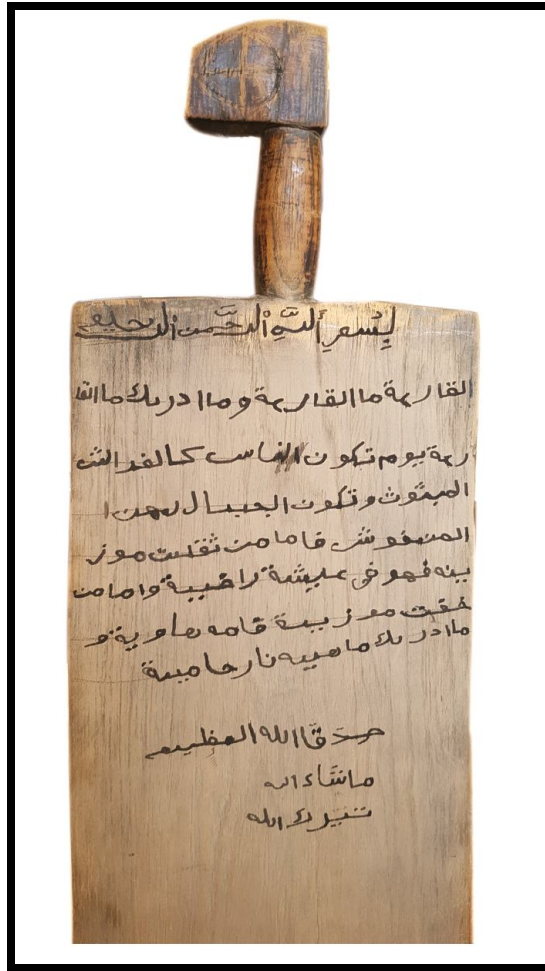 بِسْمِ أللَّهِ ألْرَّحَّمن ألرحيم
القارعة ما القارعة وما ادريك ما القا
رعة يوم تكون الناس كالفراش
المبثوث وتكون الجبال
المنفوش فاما من ثقلت موز
ينه فهو في عيشة راضية واما من
خفت موزينة فامه هاوية و
ما ادريك ماهيه نار حامية
صدقا الله العظيم
ماشاء الله
تبرك الله